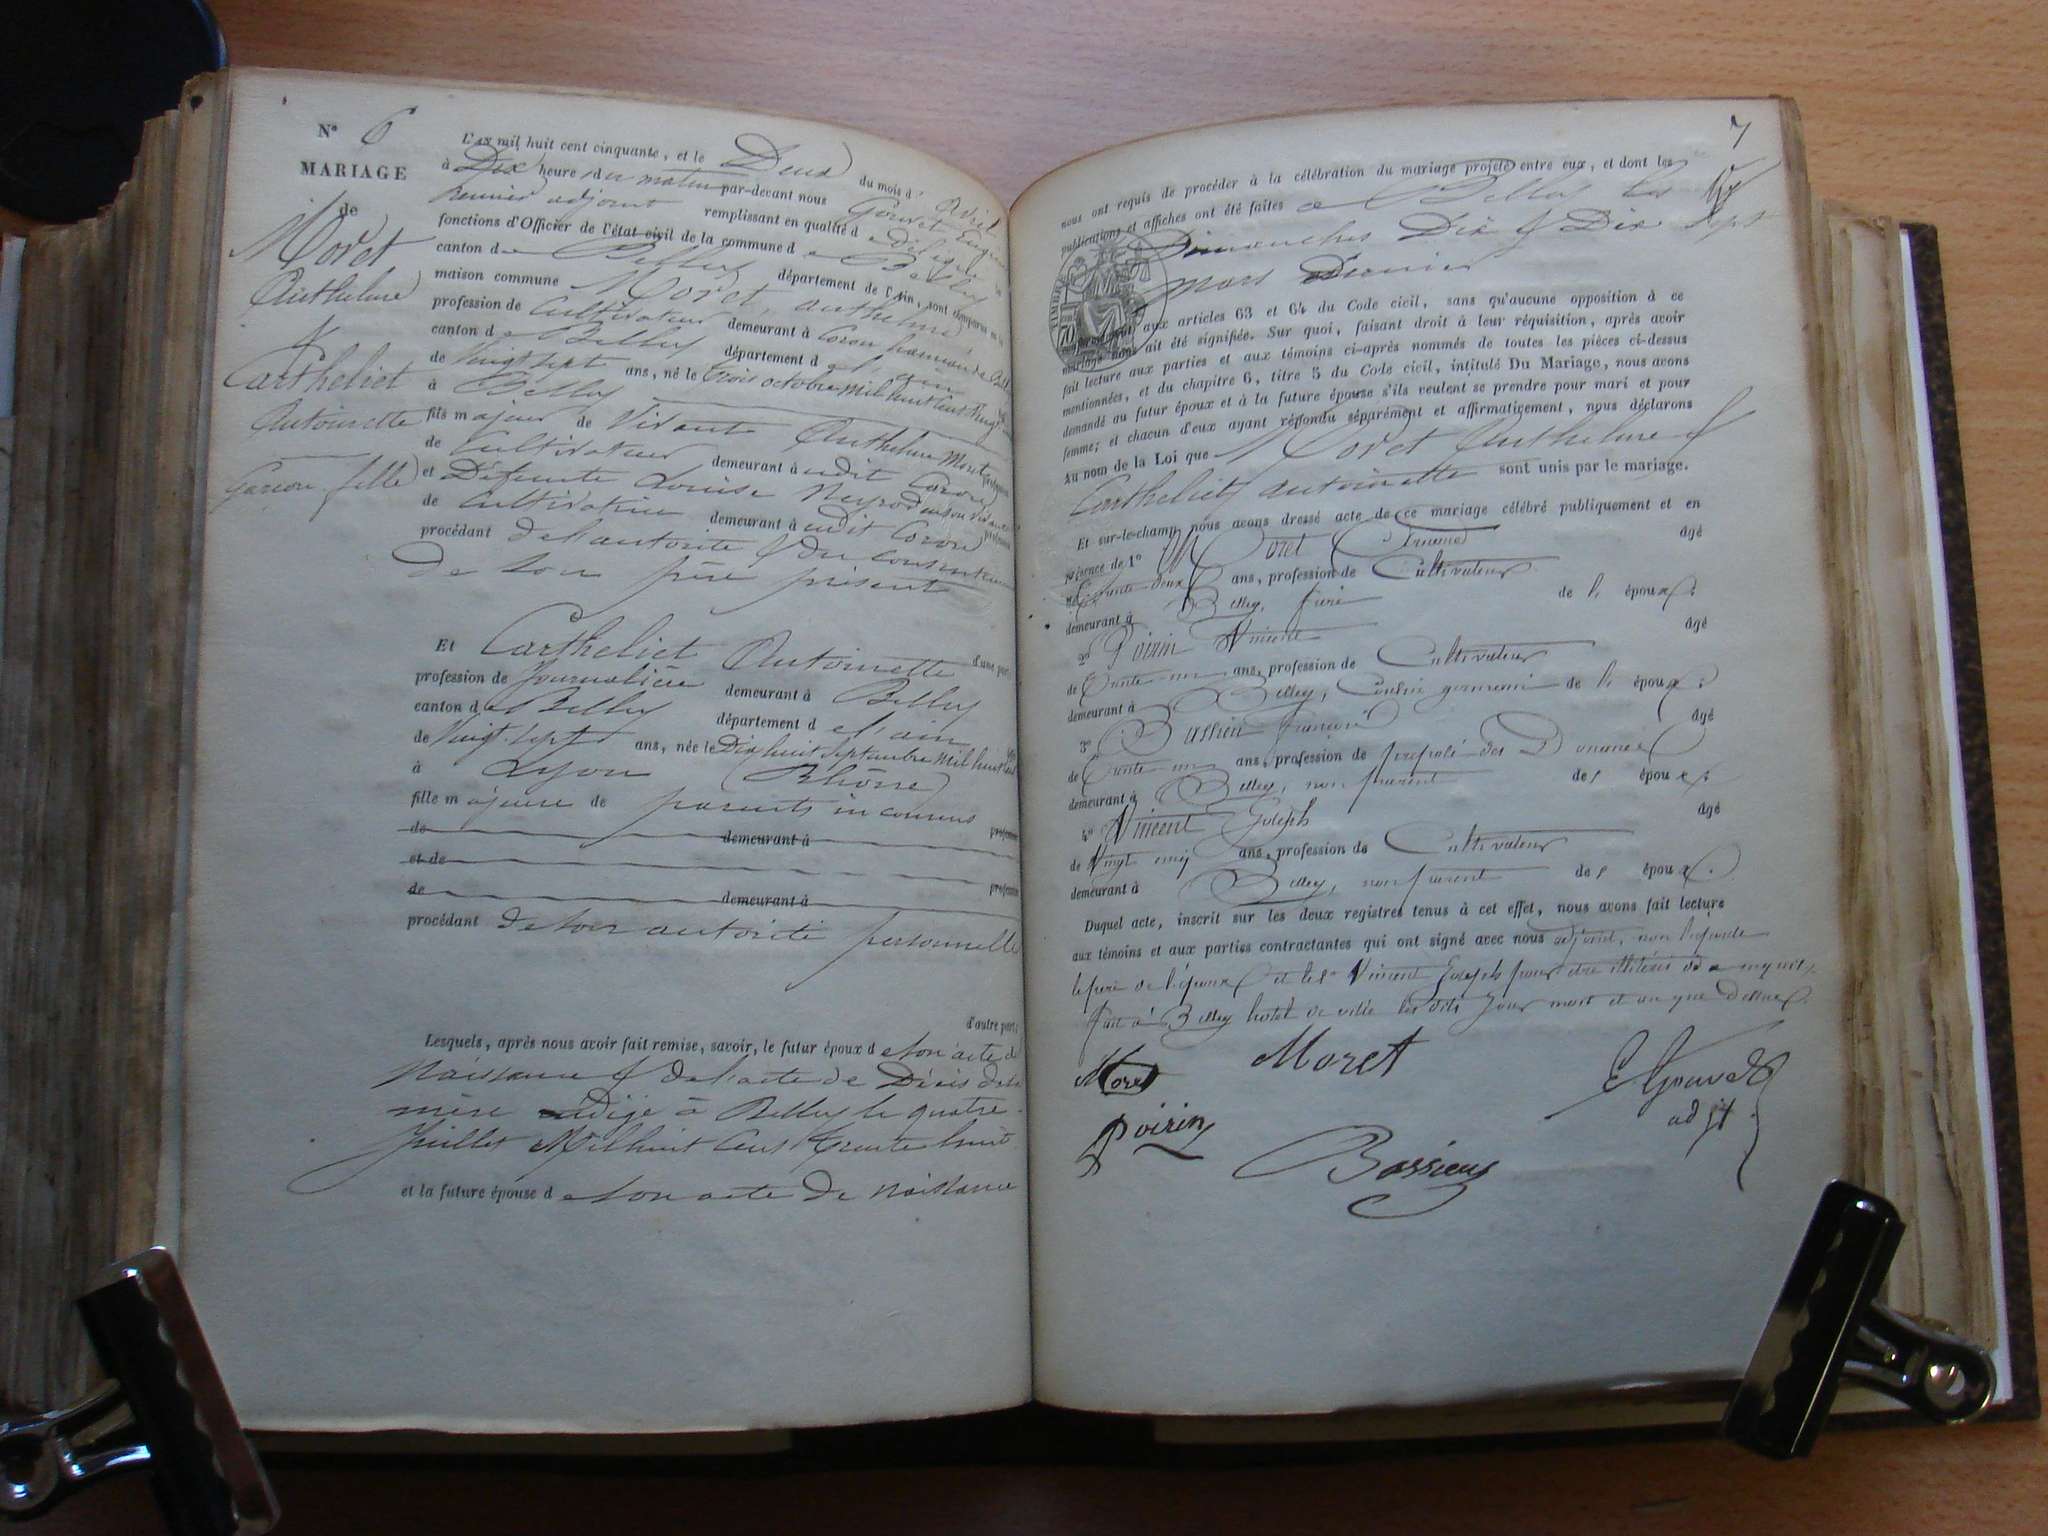 N° 6
MARIAGE
de
Moret
Anthelme
&
Carthelict
Antoinette
garçon fille
L'an mil huit cent cinquante, et le Deux du mois d'avril
à Dix heure du matin par-devant nous Gouvet
premier adjoint remplissant en qualité de délégué les
fonctions d'Officier de l'état civil de la commune de Belley
canton de Belley département de l'Ain, sont comparus en la
maison commune Moret, anthelme,
profession de Cultivateur demeurant à Coron hameau de Belley
canton de Belley département de l'ain
de Vingt sept ans, né le trois octobre mil huit cent vingt
à Belley
fils majeur de Vivant Anthelme Moret profession
de Cultivateur demeurant à audit Coron
et Défunte Louise Neyrod en son vivant profession
de Cultivatrice demeurant à audit Coron
procédant de l'autorité & du consentement
de son père présent
d'une part
Et Carthelict Antoinette
profession de Journalière demeurant à Belley
canton de Belley département de l'ain
de Vingt sept ans, née le Dix huit septembre mil huit cent
à Lyon (Rhône)
fille majeure de parents inconnus profession
de demeurant à
et de profession
de demeurant à
procédant de son autorité personnelle
d'autre part;
Lesquels, après nous avoir fait remise, savoir, le futur époux de son acte de
Naissance & de l'acte de Décès de sa
mère rédigé à Belley le quatre
Juillet Mil huit Cent trente huit
et la future épouse de son acte de naissance
7
nous ont requis de procéder à la célébration du mariage projeté entre eux, et dont les
publications et affiches ont été faites à Belley les
Dimanches Dix & Dix Sept
mars Dernier
aux articles 63 et 64 du Code civil, sans qu'aucune opposition à ce
mariage nous ait été signifiée. Sur quoi, faisant droit à leur réquisition, après avoir
fait lecture aux parties et aux témoins ci-après nommés de toutes les pièces ci-dessus
mentionnées, et du chapitre 6, titre 5 du Code civil, intitulé Du Mariage, nous avons
demandé au futur époux et à la future épouse s'ils veulent se prendre pour mari et pour
femme; et chacun d'eux ayant répondu séparément et affirmativement, nous déclarons
Au nom de la Loi que Moret Anthelme &
Carthelict antoinette sont unis par le mariage.
Et sur-le-champ nous avons dressé acte de ce mariage célébré publiquement et en
présence de 1° Moret âgé
de trente deux ans, profession de Cultivateur
demeurant à Belley, frère de l' époux;
2° Poirin Vincent âgé
de trente un ans, profession de Cultivateur
demeurant à Belley, Cousin germain de l' époux;
3° Bassieu âgé
de trente un ans, profession de préposé des Douanes
demeurant à Belley, non parent des époux;
4° Vincent Joseph âgé
de Vingt cinq ans, profession de Cultivateur
demeurant à Belley, non parent des époux.
Duquel acte, inscrit sur les deux registres tenus à cet effet, nous avons fait lecture
aux témoins et aux parties contractantes qui ont signé avec nous adjoint, non l'épouse
le père de l'époux et le sr Vincent Joseph pour être illitérés de ce enquis,
fait à Belley hotel de ville les dits Jour mois et an que Dessus.
Moret Moret E Gouvet
adjt
Poirin
Bassieu
TIMBRE